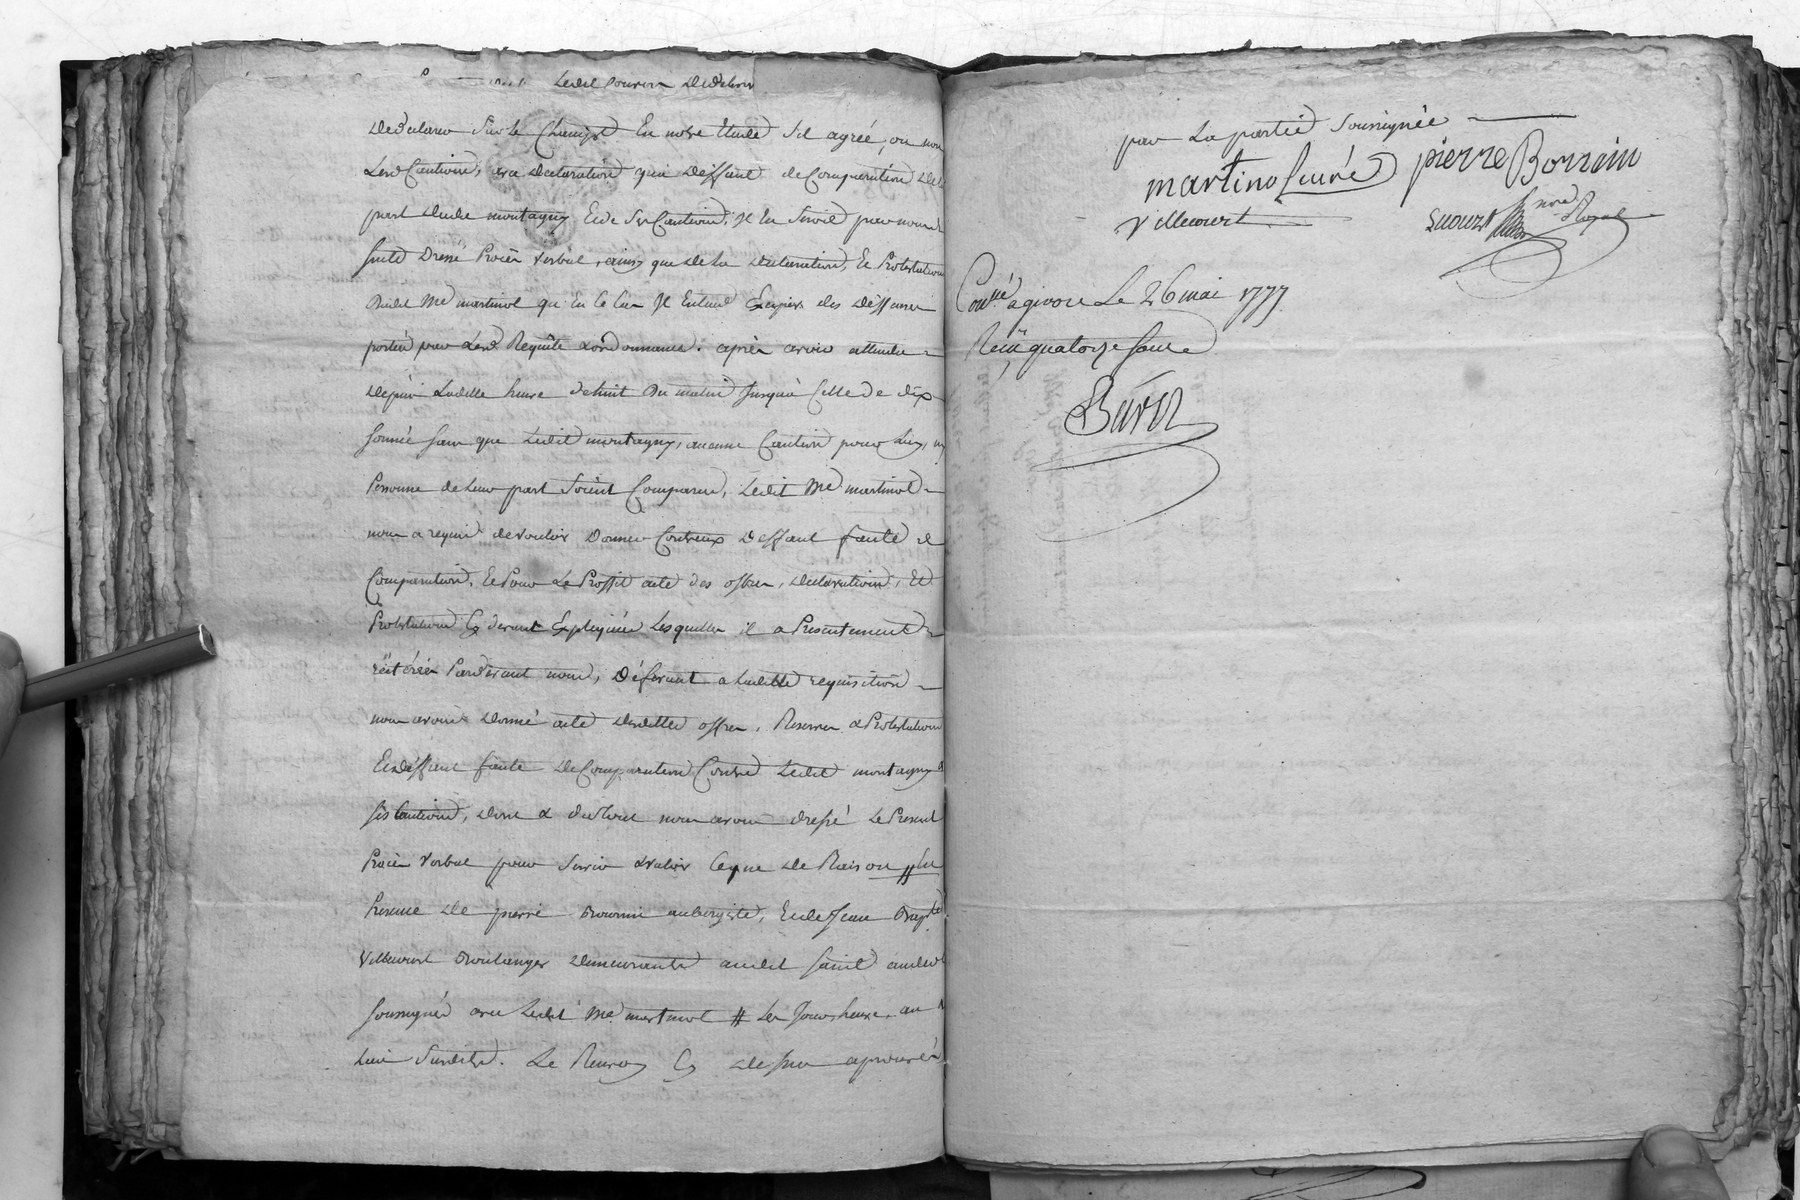 Ledit
de declarer sur le Champ En notre Etude s'il agrée, ou non
Lesd Cautions, sa declaration qu'a deffaut de Comparution de la
part dudit montagny Et de ses Cautions, Il En seroit par nous de
suite Dressé Procès Verbal, ainsy que de la declaration, Et Protestations
Dudit Me martinot qu'En Ce Cas Il Entend des deffenses
portées par Lesd. Requête & ordonnance. après avoir attendu
depuis Laditte heure de huit du matin Jusqu'à Celle de dix
sonnée sans que Ledit montagny, aucune Caution pour Luy, ny
Personne de Leur part soient Comparus, Ledit Me martinot
nous a requis de vouloir donner Contr'eux deffaut faute de
Comparution, Et Pour Le Proffit acte des offres, declarations, Et
Protestations Cy devant Expliquées Lesquelles il a Presentement
réitérées Pardevant nous, déférant a Laditte requisition
nous avons donné acte desdittes offres, Reserves & Protestations
Et deffaut faute de Comparution Contre Ledit montagny &
ses Cautions, dont & du tout nous avons dressé Le Present
Procès Verbal pour servir & valoir Ce que de Raison // En
Presence de pierre Bourrin aubergiste, Et de Jean Bapte
Villecourt Boulanger demeurants audit saint
soussignés avec Ledit Me martinot // Les Jour, heure, an &
Lieu susdits. Le Renvoy Cy dessus aprouvé
par La partie soussignée
martinol curé pierre Borrin
Villecourt
nore Royal
Conllé a givors Le 26 mai 1777
Reçu quatorze sous